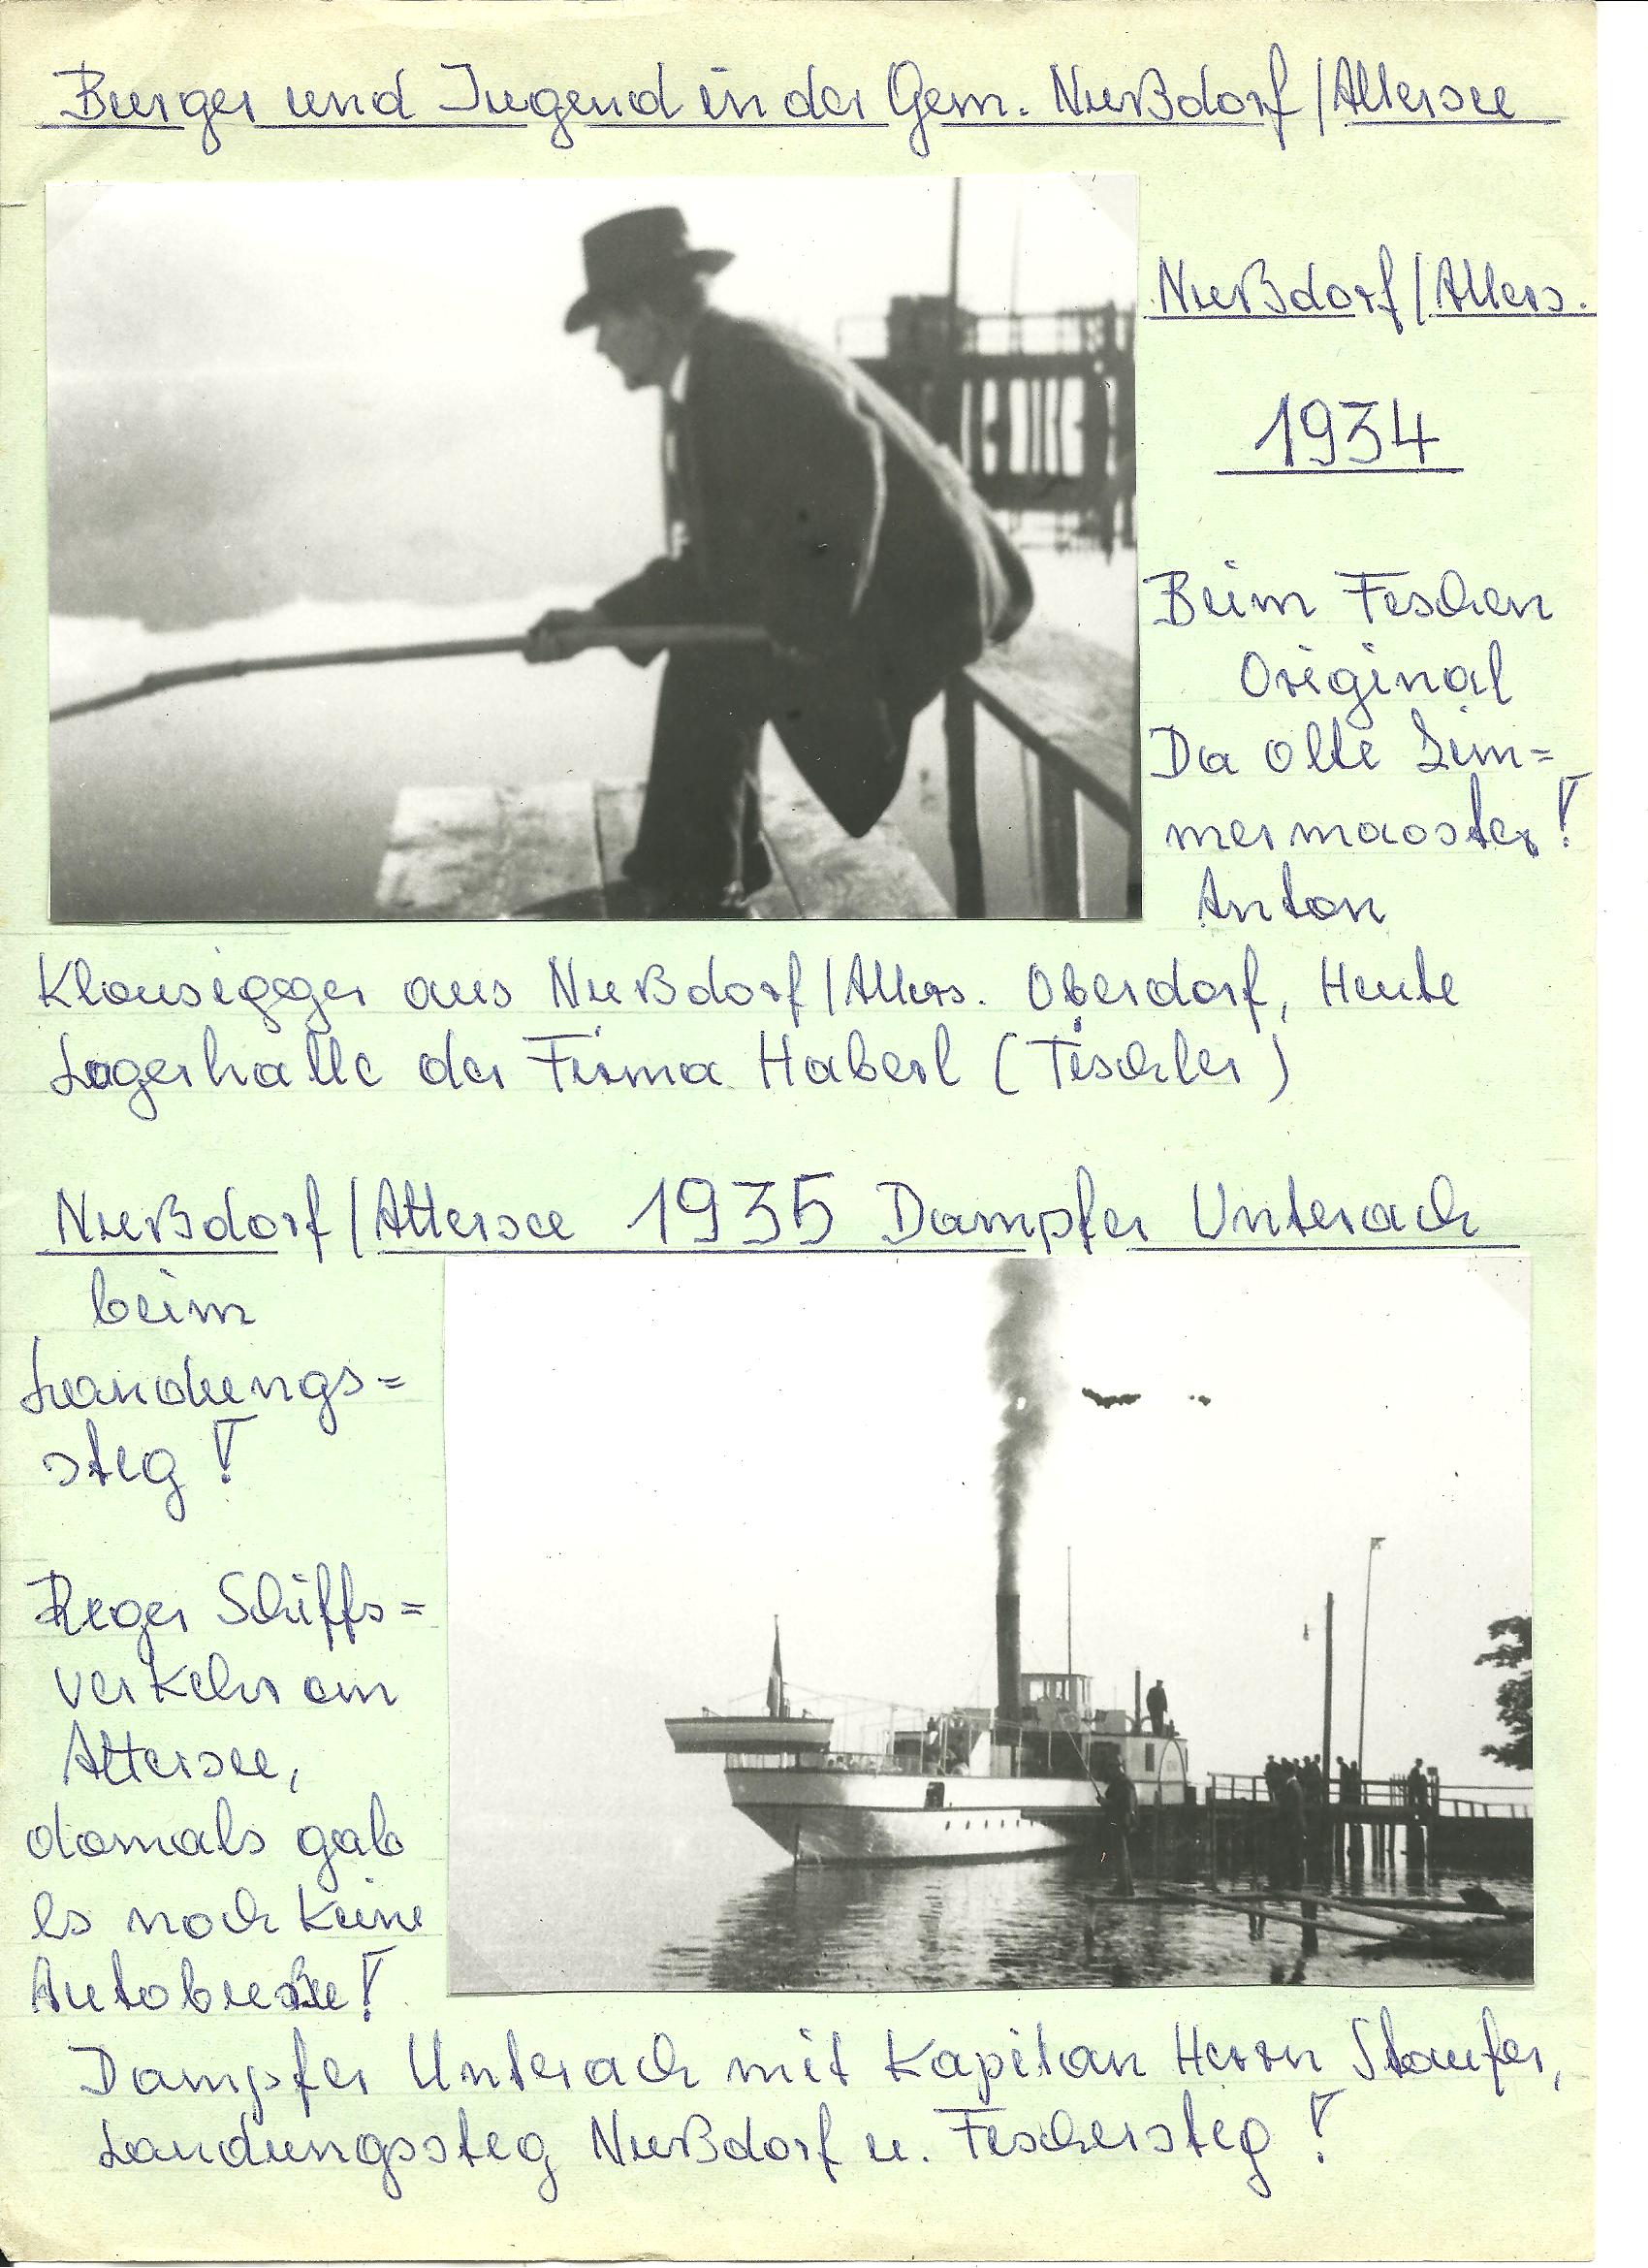 Burger und Jugend in der Gem. Nußdorf/Attersee
Nußdorf/Atters.
1934
Beim Fischen
Original
Da olte Zim=
mermaoster!
Anton
Klausegger aus Nußdorf/Atters. Oberdorf, Heute
Lagerhalle der Firma Haberl (Tischler)
Nußdorf/Attersee 1935 Dampfer Unterach
beim
Landungs=
steg!
Reger Schiffs=
verkehr am
Attersee,
damals gab
es noch keine
Autobuße!
Dampfer Unterach mit Kapitan Herrn Staufer,
Landungssteg Nußdorf u. Fischersteg!